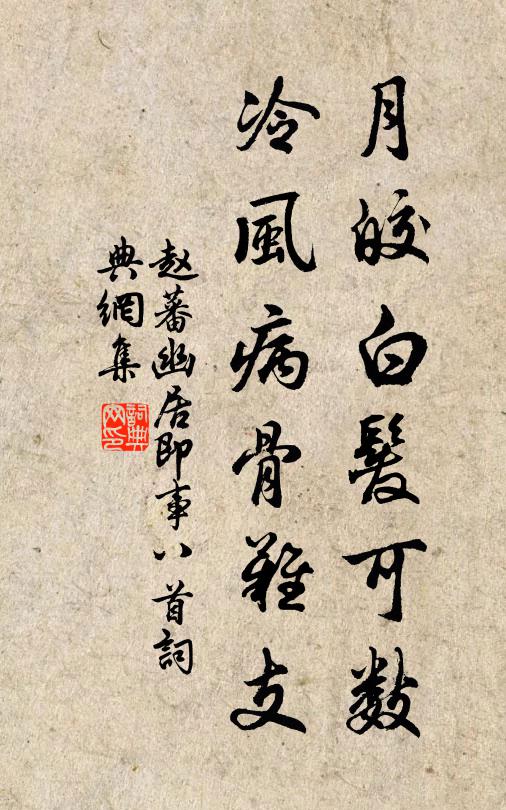 月皎白髮可數
冷風病骨難支
赵蕃幽居即事八首詞
典網集
詞典
网印